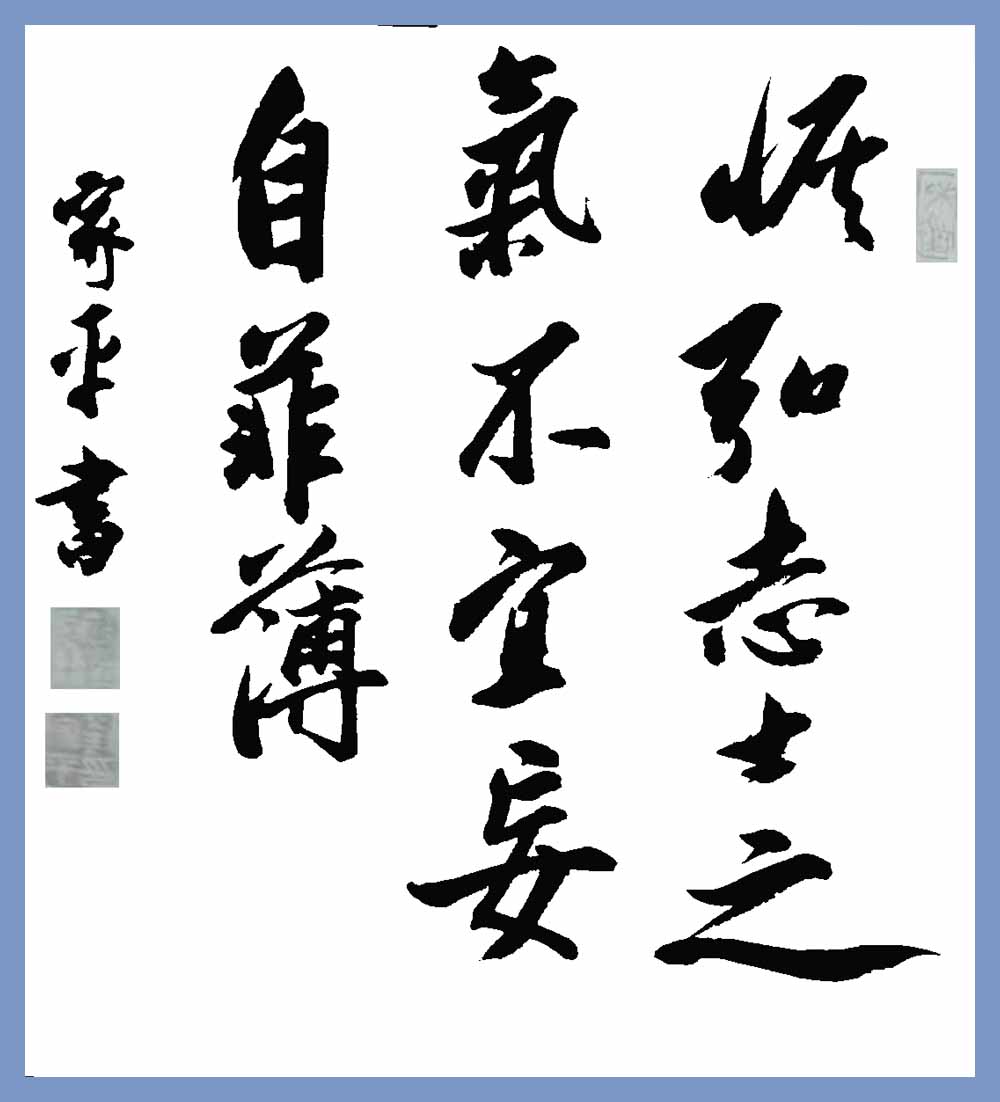 恢弘志士之
氣不宜妄
自菲薄
家平書